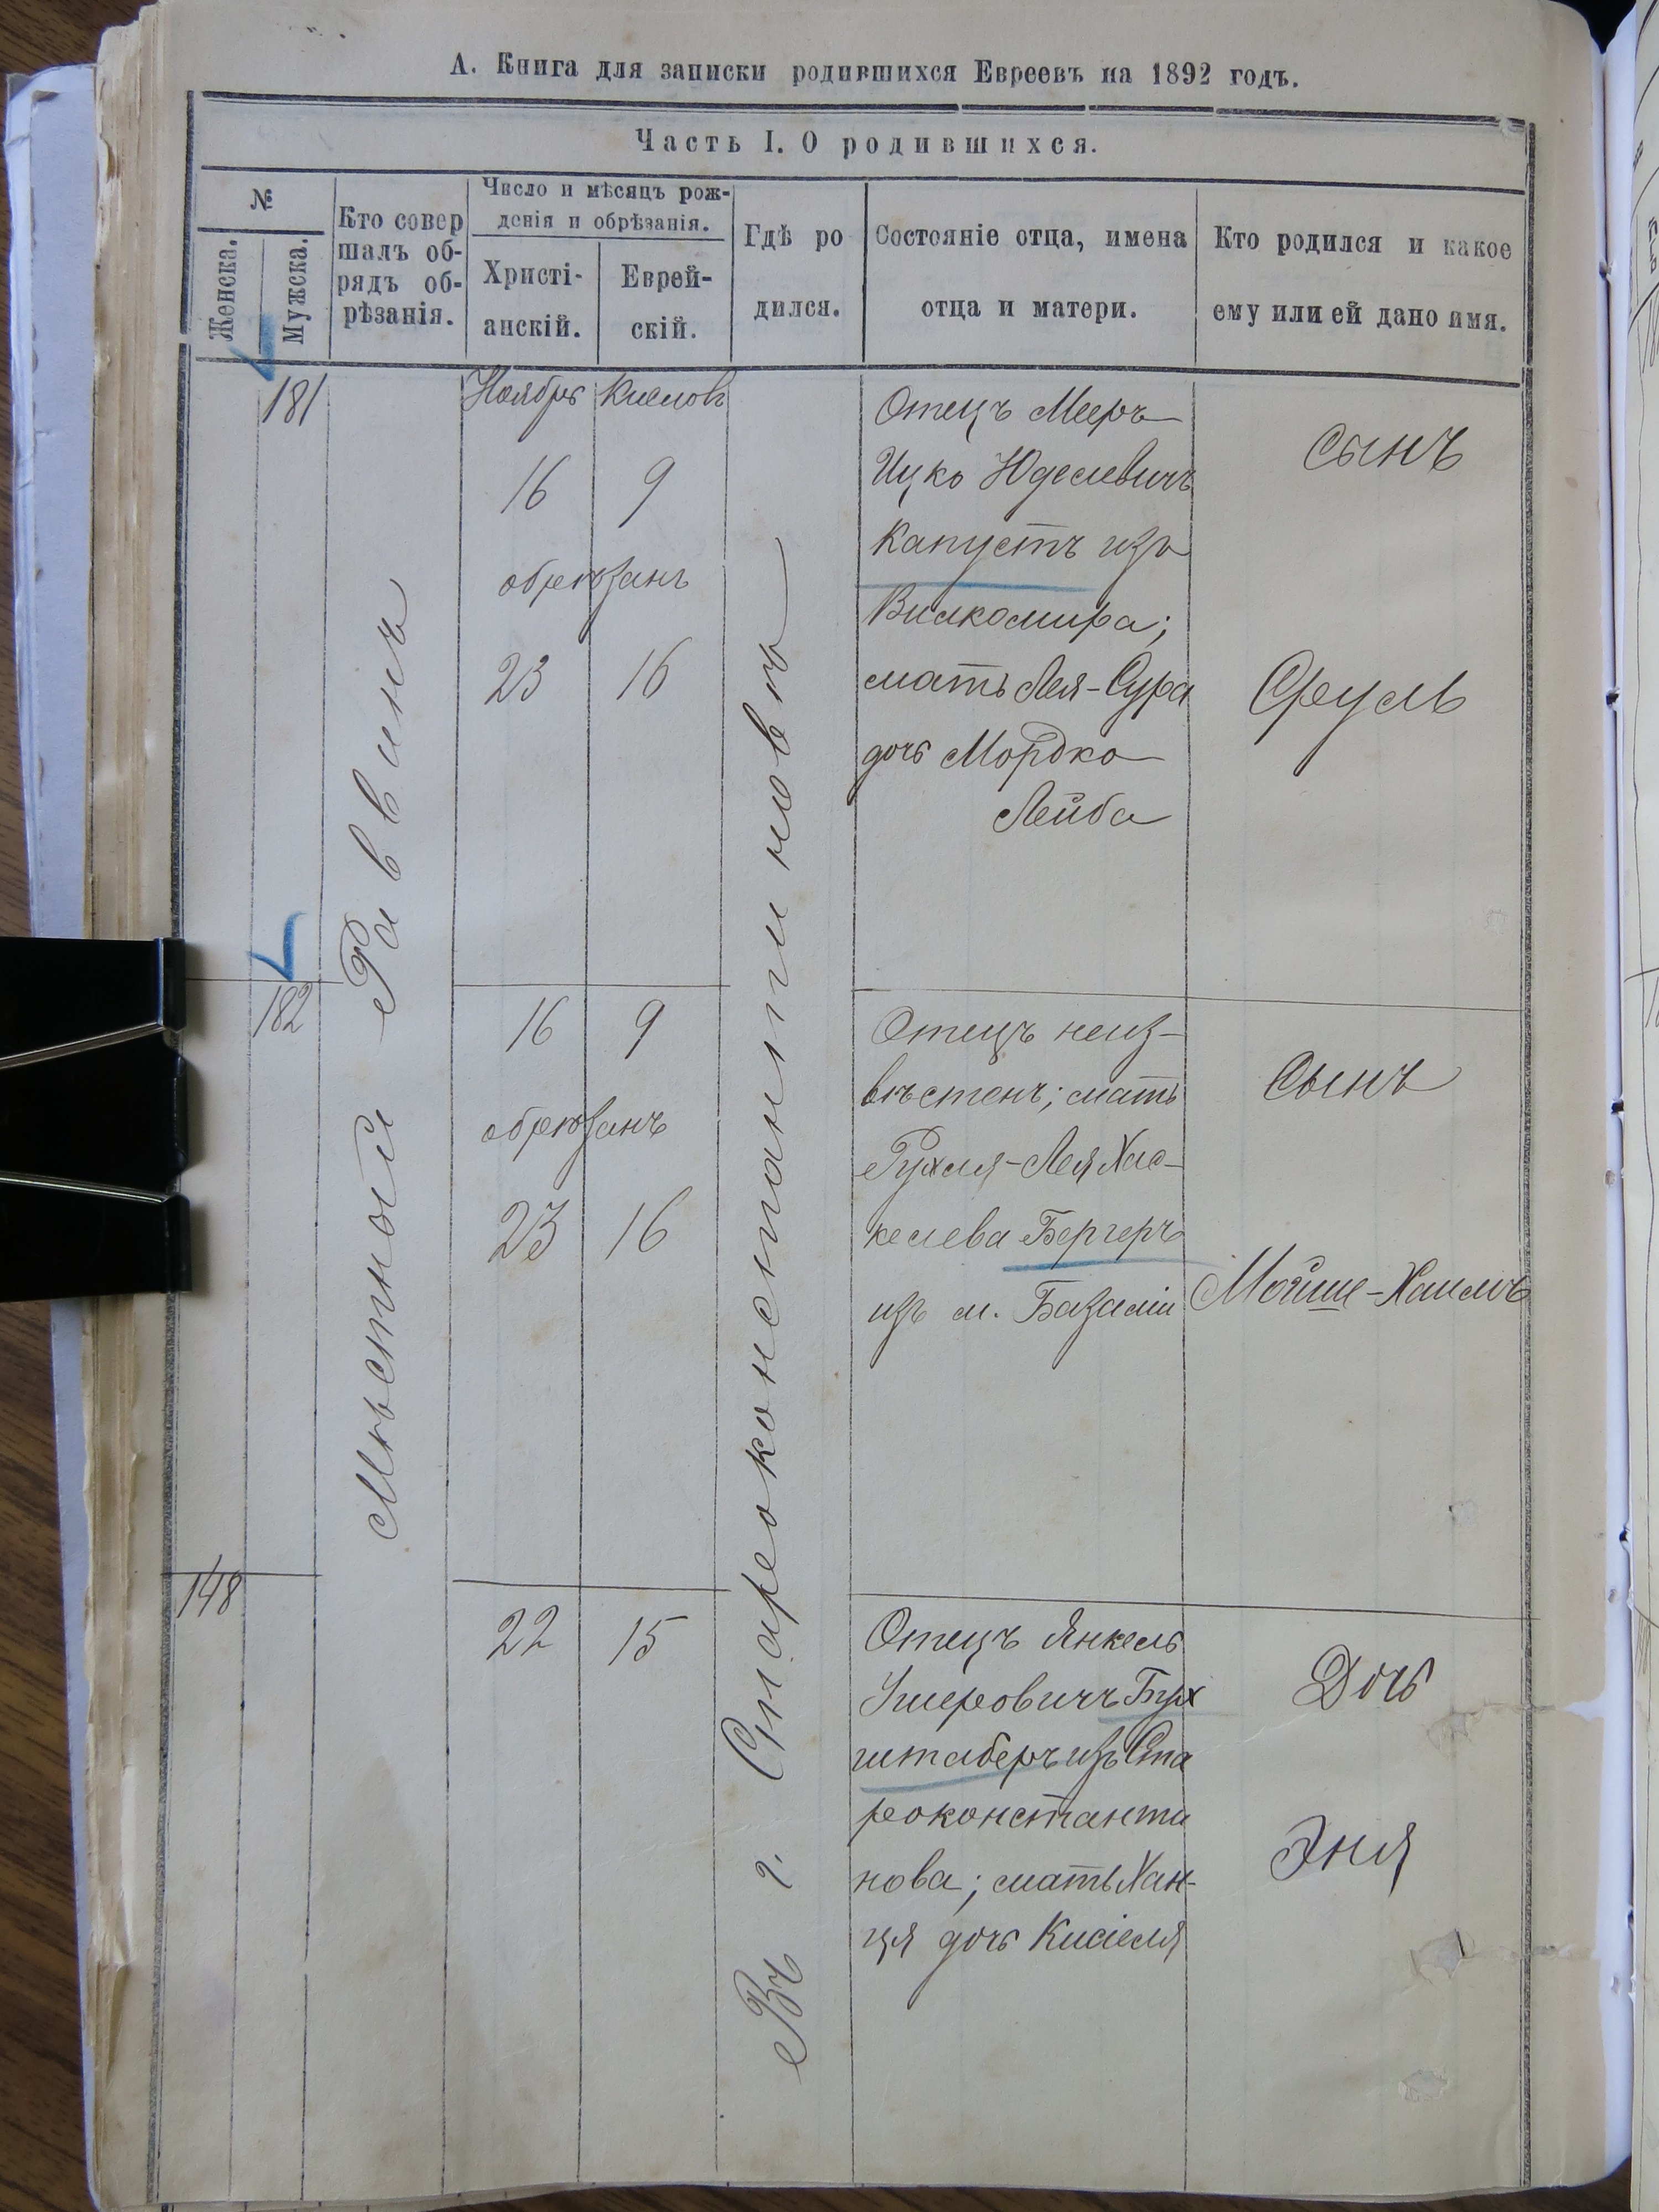 А. Книга для записки родившихся Евреевъ на 1892 годъ.
Часть I. О родившихся.
№
Женска.
Мужска.
Кто совер
шалъ об-
рядъ об-
рѣзанія.
Число и мѣсяцъ рож-
денія и обрѣзанія.
Христі-
анскій.
Еврей-
скій.
Гдѣ ро
дился.
Состояніе отца, имена
отца и матери.
Кто родился и какое
ему или ей дано имя.
Мѣстный Раввинъ
Въ г. Староконстантиновѣ
181
Ноябрь Кислов
16 9
обрѣзанъ
23 16
Отецъ Мееръ
Ицко Юделевичъ
Капустъ изъ
Вилкомира;
мать Лея-Сура
дочь Мордко
Лейба
сынъ
Сруль
182
16 9
обрѣзанъ
23 16
Отецъ неиз-
вѣстенъ; мать
Рухля-Лея Хас-
келева Бергеръ
изъ м. Базаліи
сынъ
Мойше-Хаимъ
148
22 15
Отецъ Янкель
Ушеровичъ Бух
штаберъ изъ Ста
роконстанти
нова; мать Хан-
ця дочь Кисіеля
Дочь
Эня